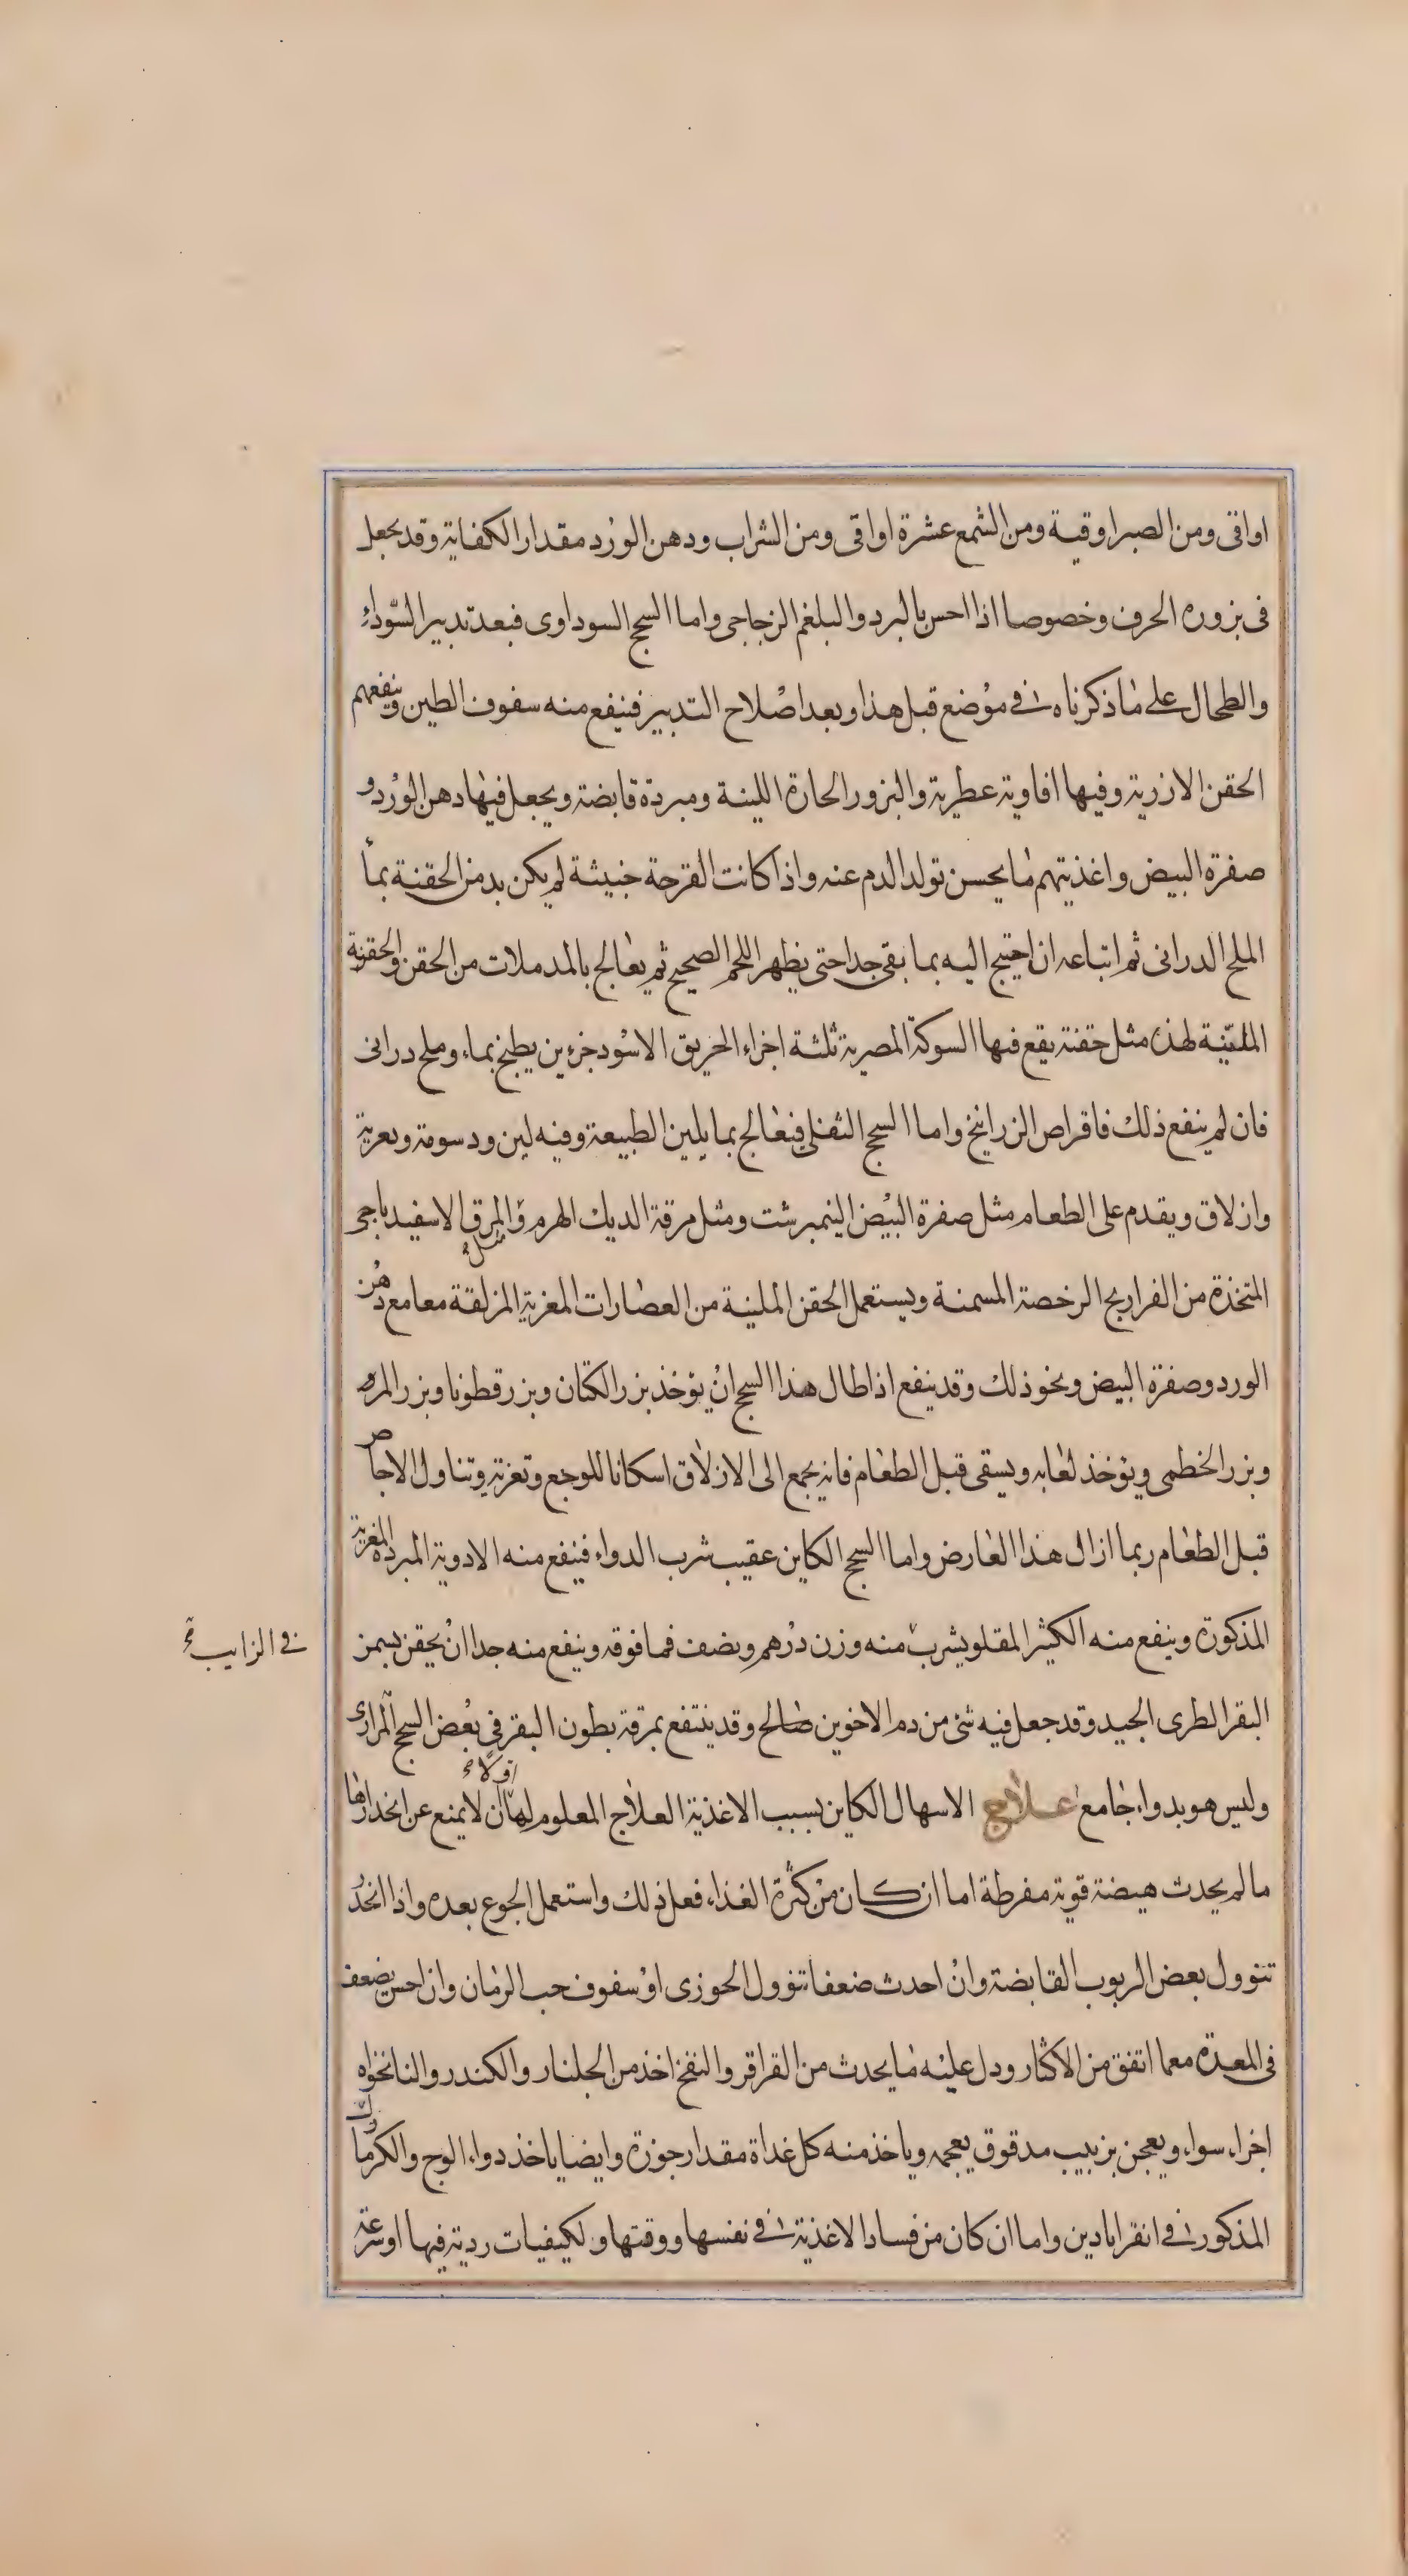 اواقى ومن الصبر اوقية ومن الشمع عشرة اواقى ومن الشراب ودهن الورد مقدار الكفاية وقد يجعل
فى بزوره الحرف وخصوصا اذا احس بالبرد والبلغم الزجاجى واما السحج السوداوى فبعد تدبير السوداء
والطحال على ما ذكرناه فى موضع قبل هذا وبعد اصلاح التدبير فينفع منه سفوف الطين وينفعهم
الحقن الارزية وفيها افاوية عطرية والبزور الحارة اللينة ومبردة قابضة ويجعل فيها دهن الورد و
صفرة البيض واغذيتهم ما يحسن تولد الدم عنه واذا كانت القرحة خبيثة لم يكن بد من الحقنة بمأ
الملح الدرانى ثم اتباعه ان احتيج اليه بما ينقى جدا حتى يظهر اللحم الصحيح ثم يعالج بالمدملات من الحقن والحقنة
المنقيّة لهذه مثل حقنة يقع فيها السوكة المصرية ثلثة اجزاء الخريق الاسود جزءين يطبخ بماء وملح درانى
فان لم ينفع ذلك فاقراص الزرانيخ واما السحج الثفلى فيعالج بما يلين الطبيعة وفيه لين ودسومة وتعرية
وازلاق ويقدم على الطعام مثل صفرة البيض النيمبرشت ومثل مرقة الديك الهرم والمرق الاسفيدباجى مثل
المتخذة من الفراريج الرخصة المسمنة ويستعمل الحقن الملينة من العصارات المغرية المزلقة معا مع دهن
الورد وصفرة البيض ونحو ذلك وقد ينفع اذا طال هذا السحج ان يؤخذ بزر الكتان وبزر قطونا وبزر المره
وبزر الخطمى ويؤخذ لعابه ويسقى قبل الطعام فانه يجمع الى الازلاق اسكانا للوجع وتغرية وتناول الاجاص
قبل الطعام ربما ازال هذا العارض واما السحج الكاين عقيب شرب الدواء فينفع منه الادوية المبردة المغرية
المذكورة وينفع منه الكثيرا المقلو يشرب منه وزن درهم ونصف فما فوقه وينفع منه جدا ان يحقن بسمن
فى الزايب
البقر الطرى الجيد وقد جعل فيه شئ من دم الاخوين صالح وقد ينتفع بمرقة بطون البقر فى بعض السحج المرارى
وليس هو بدواء جامع علاج الاسهال الكاين بسبب الاغذية العلاج المعلوم لها اولا ان لا يمنع عن انحدارها
ما لم يحدث هيضة قوية مفرطة اما ان كان من كثرة الغذاء فعل ذلك واستعمل الجوع بعده واذا انحد
تنوول بعض الربوب القابضة وان احدث ضعفا تنوول الحوزى او سفوف حب الرمان وان احس بضعف
فى المعدة معما اتفق من الاكثار ودل عليه ما يحدث من القراقر والنفخ اخذ من الجلنار والكندر والنانخواه
اجزاء سواء ويعجن بزبيب مدقوق بعجمه وياخذ منه كل غداة مقدار جوزة وايضا ياخذ دواء الوج والكرمازك
المذكور فى انقراباذين واما ان كان من فساد الاغذية فى نفسها ووقتها ولكيفيات ردية فيها او سرعة